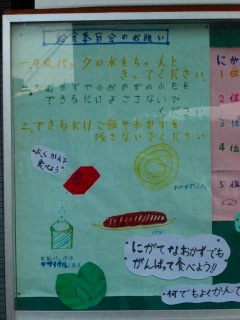 給食委員会のお願い
一、牛乳パックの水をちゃんと
きってください。
二、おかずや小おかずのふたを
できるだけよごさないで
ください。
三、できるだけご飯やおかずを
残さないでください
よくかんで
食べよう
リサイクル
にがてなおかずでも
がんばって食べよう!!
何でもよくかんで
にが
1位
2位
3位
4位
5位